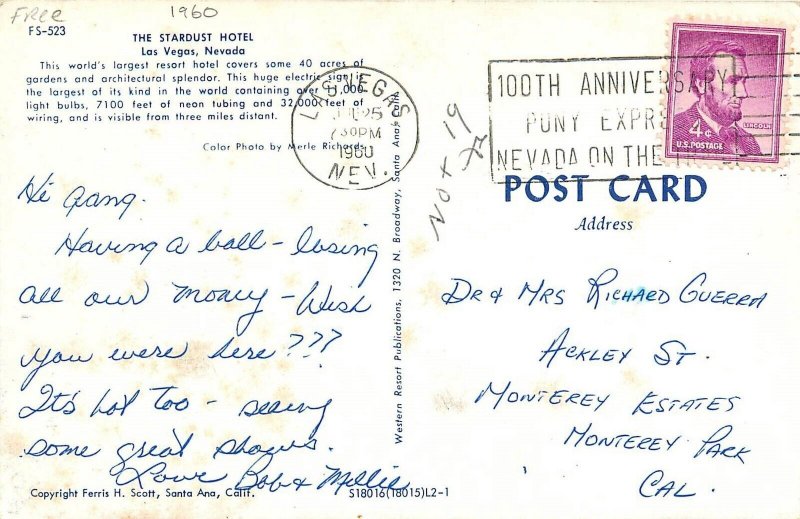 FREE
1960
FS-523
THE STARDUST HOTEL
Las Vegas, Nevada
This world's largest resort hotel covers some 40 acres of
gardens and architectural splendor. This huge electric sign is
the largest of its kind in the world containing over
light bulbs, 7100 feet of neon tubing and 32,000 feet of
wiring, and is visible from three miles distant.
Color Photo by Merle Richards
LAS VEGAS
25
PM
1960
NEV.
100TH ANNIVERSARY
PONY EXPR
NEVADA ON THE
4¢
LINCOLN
U.S. POSTAGE
Not 19
POST CARD
Address
Hi gang.
Having a ball - losing
all our money - Wish
you were here???
It's hot too - seeing
some great shows.
Love Bob & Mollie
DR & MRS RICHARD GUERRA
ACKLEY ST.
MONTEREY ESTATES
MONTEREY PARK
CAL.
Western Resort Publications, 1320 N. Broadway, Santa Ana, Calif.
Copyright Ferris H. Scott, Santa Ana, Calif.
S18016(18015)L2-1